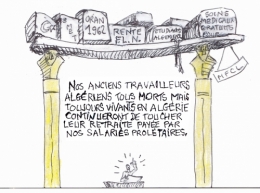 GAZ
ORAN
1962
RENTE
F.L.N.
ETUDIANTS
ALGERIENS
SOINS
MEDICAUX
GRATUITS
POUR
NOS ANCIENS TRAVAILLEURS
ALGÉRIENS TOUS MORTS MAIS
TOUJOURS VIVANTS EN ALGÉRIE
CONTINUERONT DE TOUCHER
LEUR RETRAITE PAYÉE PAR
NOS SALARIÉS PROLÉTAIRES.